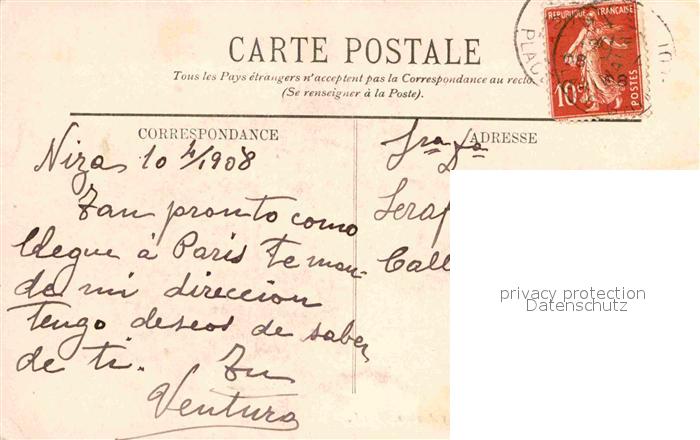 CARTE POSTALE
Tous les Pays étrangers n'acceptent pas la Correspondance au recto
(Se renseigner à la Poste).
CORRESPONDANCE
ADRESSE
REPUBLIQUE FRANÇAISE
10c
POSTES
PLACE
Niza 10 4/1908
Tan pronto como
llegue á Paris te man-
do mi direccion
tengo deseos de saber
de ti. Tu
Ventura
Sra Da
Seraf
Call
privacy protection
Datenschutz